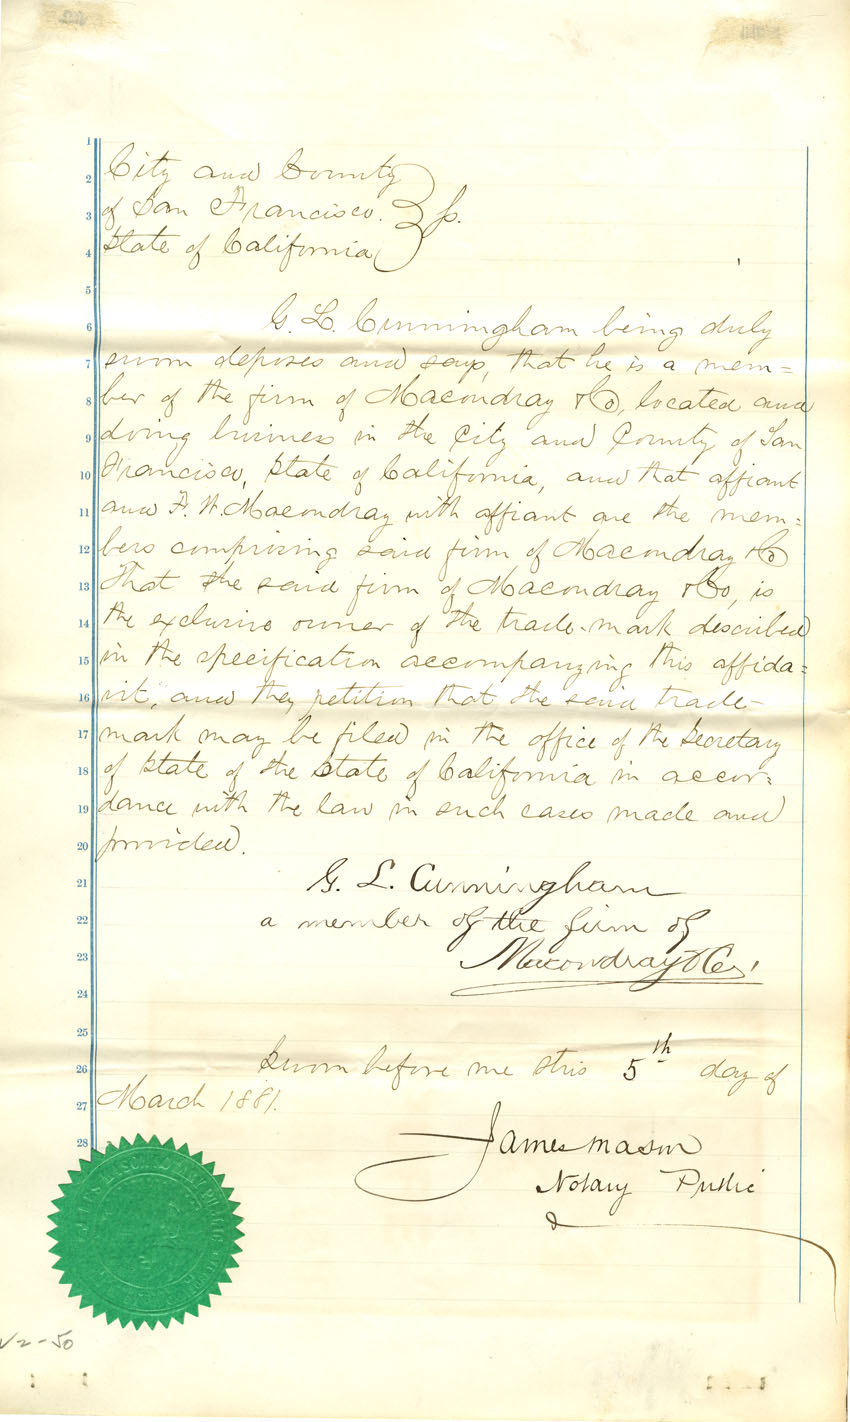 City and County
of San Francisco. } ss.
State of California
G. L. Cunningham being duly
sworn deposes and says, that he is a mem=
ber of the firm of Macondray & Co, located and
doing business in the City and County of San
Francisco, State of California, and that affiant
and F. W. Macondray with affiant are the mem=
bers comprising said firm of Macondray & Co
That the said firm of Macondray & Co, is
the exclusive owner of the trade-mark described
in the specification accompanying this affida=
vit, and they petition that the said trade-
mark may be filed in the office of the Secretary
of State of the State of California in accor=
dance with the law in such cases made and
provided.
G. L. Cunningham
a member of the firm of
Macondray & Co,
Sworn before me this 5th day of
March 1881.
James Mason
Notary Public
V2-50
1
2
3
4
5
6
7
8
9
10
11
12
13
14
15
16
17
18
19
20
21
22
23
24
25
26
27
28